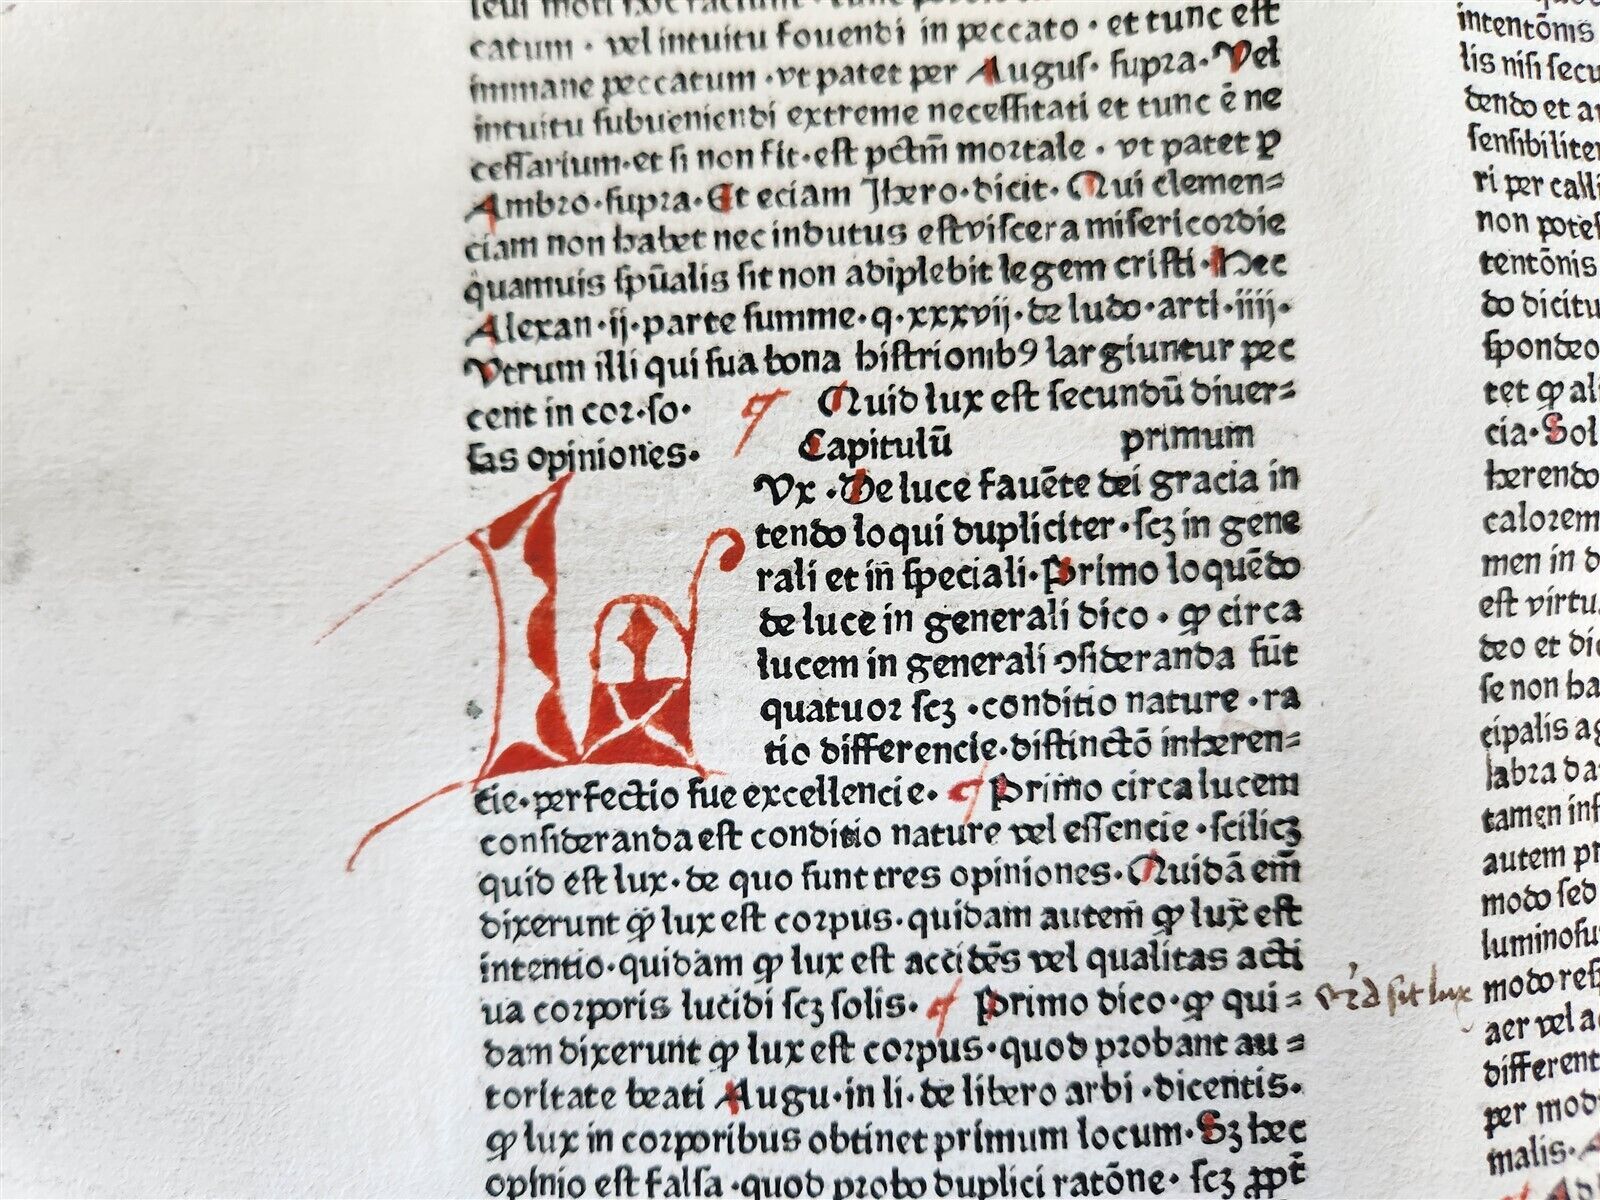 catum · vel intuitu fouendi in peccato · et tunc eſt
immane peccatum · vt patet per Auguſ· ſupra· Vel
intuitu ſubueniendi extreme neceſſitati et tunc ē ne
ceſſarium· et ſi non fit· eſt pctm̄ moꝛtale · vt patet ꝑ
Ambꝛo· ſupꝛa· Et eciam Jhero· dicit· Qui clemen⸗
ciam non habet nec indutus eſt viſcera miſericoꝛdie
quamuis ſpūalis ſit non adiplebit legem criſti· Hec
Alexan· ij· parte ſumme· q· xxxvij· de ludo· artl· iiij·
Vtrum illi qui ſua bona hiſtrionibꝯ largiuntur pec
cent in coꝛ· ſo·
¶ Quid lux eſt ſecundū diuer⸗
ſas opiniones·
Capitulū primum
LVx · De luce fauēte dei gracia in
tendo loqui dupliciter · ſcꝫ in gene
rali et in ſpeciali· Primo loquēdo
de luce in generali dico · ꝙ circa
lucem in generali ↄſideranda ſūt
quatuoꝛ ſcꝫ · conditio nature · ra
tio differencie· diſtinctō inheren⸗
tie· perfectio ſue excellencie· ¶ Primo circa lucem
conſideranda eſt conditio nature vel eſſencie · ſcilicꝫ
quid eſt lux· de quo ſunt tres opiniones· Quidā em̄
dixerunt ꝙ lux eſt coꝛpus· quidam autem ꝙ lux eſt
intentio· quidam ꝙ lux eſt accidēs vel qualitas acti
ua coꝛporis lucidi ſcꝫ ſolis· ¶ Primo dico· ꝙ qui⸗
dam dixerunt ꝙ lux eſt coꝛpus· quod pꝛobant au⸗
toritate beati Augu· in li· de libero arbi · dicentis·
ꝙ lux in coꝛporibus obtinet primum locum· Sꝫ hec
opinio eſt falſa · quod pꝛobo duplici ratōne· ſcꝫ
ſit lux
intentōnis
lis niſi ſecu
dendo et
ſenſibiliter
ri per calli
non poteſ
tentōnis
do dicitu
ſpondeo
tet ꝙ ali
cia· Sol
herendo
caloꝛem
men in d
eſt virtu
deo et dic
ſe non ha
cipalis ag
labꝛa da
tamen inf
autem pr
modo ſed
luminoſu
modo reſ
aer vel a
different
per modu
malis·